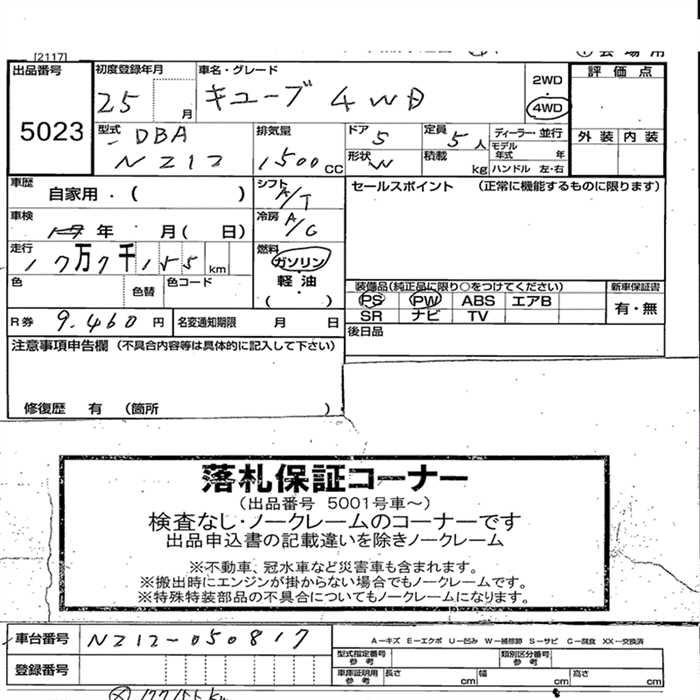 [2117]
出品番号 5023
初度登録年月 25 月
車名・グレード キューブ 4WD
2WD
4WD
評価点
外装 内装
型式 DBA
NZ12
排気量 1500 CC
ドア 5
定員 5 人
ディーラー・並行
形状 W
積載 kg
モデル年式 年
ハンドル 左・右
車歴 自家用・( )
シフト A/T
セールスポイント (正常に機能するものに限ります)
車検 年 月( 日)
冷房 A/C
走行 17万7千155 km
燃料 ガソリン
軽油
( )
色 色替 色コード
装備品(純正品に限り○をつけてください)
新車保証書
PS PW ABS エアB
有・無
SR ナビ TV
R券 9.460 円
名変通知期限 月 日
後日品
注意事項申告欄 (不具合内容等は具体的に記入して下さい)
修復歴 有 (箇所 )
落札保証コーナー
(出品番号 5001号車〜)
検査なし・ノークレームのコーナーです
出品申込書の記載違いを除きノークレーム
※不動車、冠水車など災害車も含まれます。
※搬出時にエンジンが掛からない場合でもノークレームです。
※特殊特装部品の不具合についてもノークレームになります。
車台番号 NZ12-050817
A-キズ E-エクボ U-凹み W-補修跡 S-サビ C-腐食 XX-交換済
型式指定番号 参考
類別区分番号 参考
登録番号
車庫証明用 参考 長さ cm 幅 cm 高さ cm